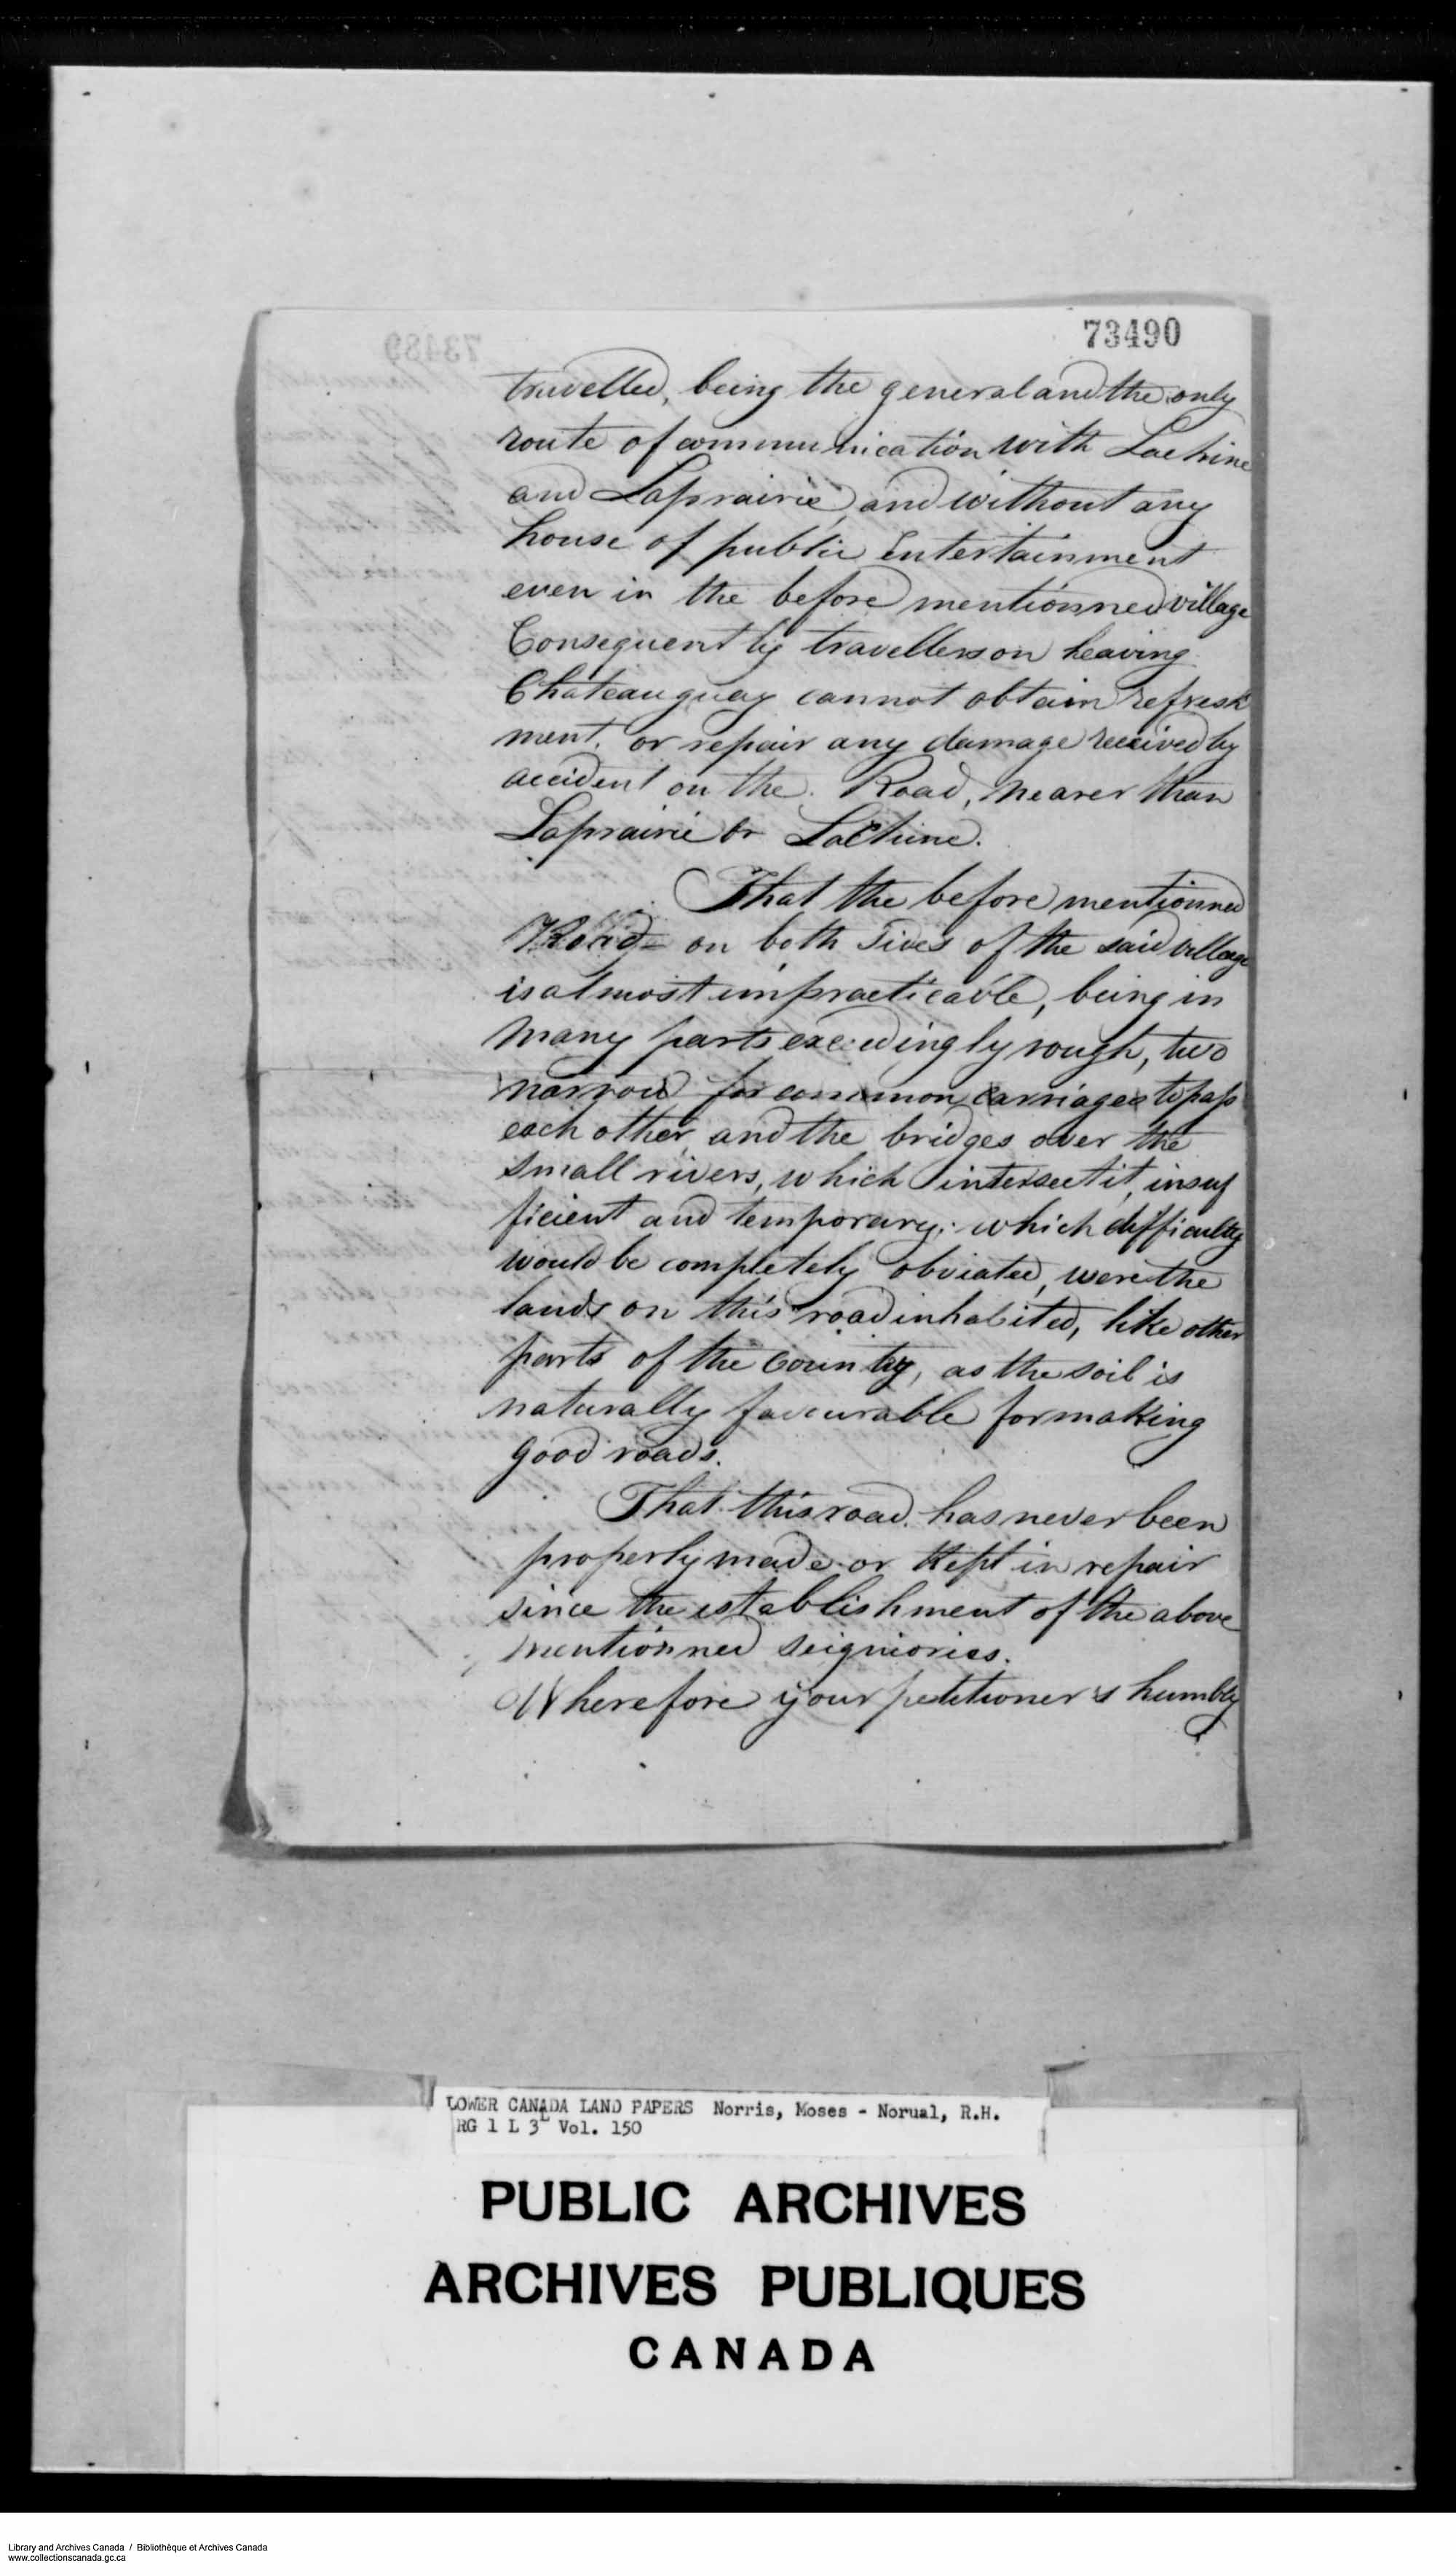 73490
travelled, being the general and the only
route of communication with Lachine
and Laprairie, and without any
house of public Entertainment
even in the before mentionned village
Consequently travellers on leaving
Chateauguay cannot obtain refresh
ment, or repair any damage received by
accident on the Road, nearer than
Laprairie or Lachine.
That the before mentionned
Road on both sides of the said village
is almost impracticable, being in
many parts exceedingly rough, two
narrow for common carriages to pass
each other, and the bridges over the
small rivers, which intersect it, insuf
ficient and temporary; which difficulty
would be completely obviated, were the
lands on this road inhabited, like other
parts of the Country, as the soil is
naturally favourable for making
good roads.
That this road has never been
properly made or kept in repair
since the establishment of the above
mentionned seigniories.
Wherefore your petitioner's humbly
LOWER CANADA LAND PAPERS Norris, Moses - Norual, R.H.
RG 1 L 3L Vol. 150
PUBLIC ARCHIVES
ARCHIVES PUBLIQUES
CANADA
Library and Archives Canada / Bibliothèque et Archives Canada
www.collectionscanada.gc.ca